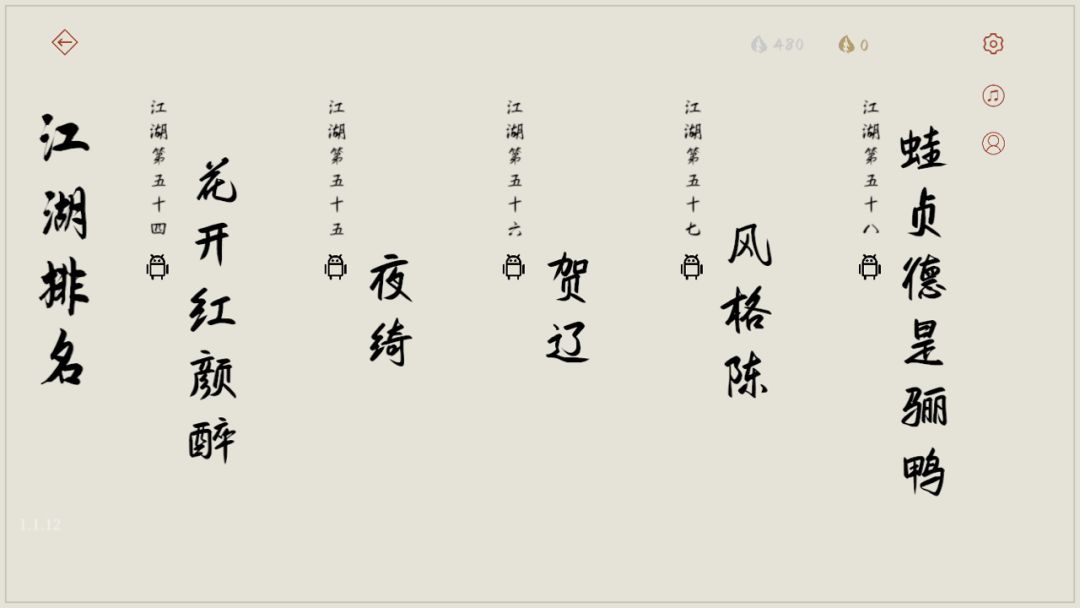 480
0
江湖排名
江湖第五十四
花开红颜醉
江湖第五十五
夜绮
江湖第五十六
贺辽
江湖第五十七
风格陈
江湖第五十八
蛙贞德是骊鸭
1.1.12